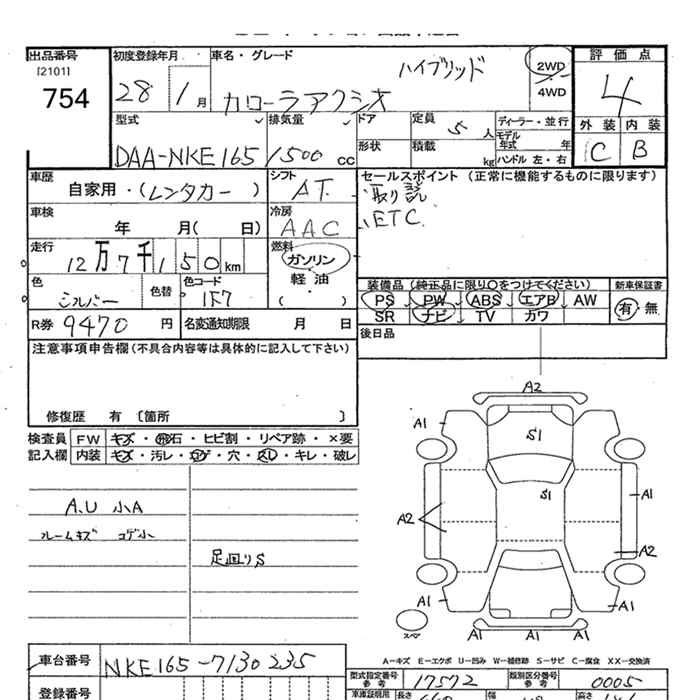 出品番号
[2101]
754
初度登録年月
28 1 月
車名・グレード
ハイブリッド
カローラアクシオ
2WD
4WD
評価点
4
外装 内装
C B
型式
DAA-NKE165
排気量
1500 cc
ドア
形状
定員
5 人
積載
kg
ディーラー・並行
モデル
年式 年
ハンドル 左・右
車歴
自家用・(レンタカー)
シフト
AT
セールスポイント (正常に機能するものに限ります)
取り説
ETC
車検
年 月( 日)
冷房
AAC
走行
12万7千150km
燃料
ガソリン
軽油
( )
色
シルバー
色替
色コード
1F7
装備品 (純正品に限り○をつけてください)
PS PW ABS エアB AW
SR ナビ TV カワ
新車保証書
有・無
R券 9470 円
名変通知期限 月 日
後日品
注意事項申告欄 (不具合内容等は具体的に記入して下さい)
修復歴 有 〔箇所 〕
検査員
記入欄
FW キズ・飛石・ヒビ割・リペア跡・×要
内装 キズ・汚レ・コゲ・穴・スレ・キレ・破レ
A.U 小A
フレームキズ コゲ小
足回りS
A2
A1
A1
S1
S1
A1
A2
A2
A1
A1
A1 A1 A1
スペア
A-キズ E-エクボ U-凹み W-補修跡 S-サビ C-腐食 XX-交換済
車台番号 NKE165-7130235
型式指定番号
参考
17572
類別区分番号
参考
0005
登録番号
車庫証明用
長さ
幅
高さ